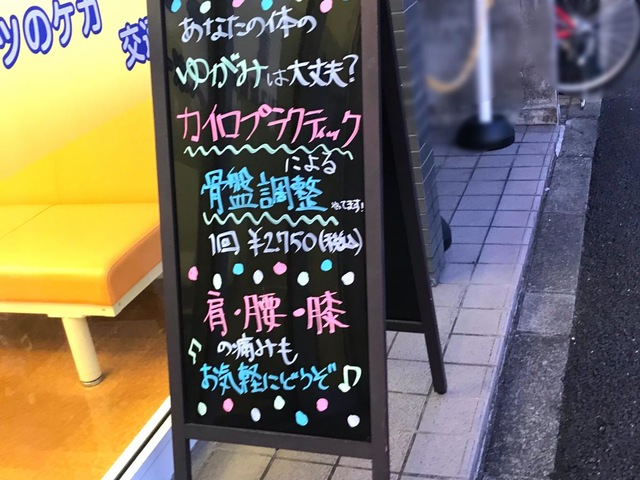 ツのケガ
交
あなたの体の
ゆがみは大丈夫?
カイロプラクティック
による
骨盤調整 やってます!
1回 ¥2,750(税込)
肩・腰・膝
の痛みも
お気軽にどうぞ♪